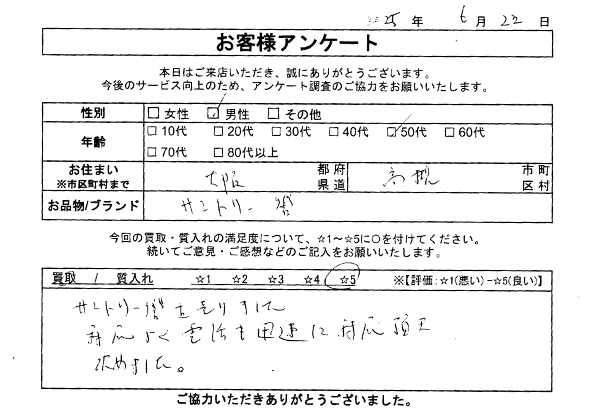 25年 6月 22日
お客様アンケート
本日はご来店いただき、誠にありがとうございます。
今後のサービス向上のため、アンケート調査のご協力をお願いいたします。
性別 □女性 ☑男性 □その他
年齢 □10代 □20代 □30代 □40代 ☑50代 □60代
□70代 □80代以上
お住まい ※市区町村まで 大阪 都府県道 高槻 市町区村
お品物/ブランド サントリー 響
今回の買取・質入れの満足度について、☆1~☆5に○を付けてください。
続いてご意見・ご感想などのご記入をお願いいたします。
買取 / 質入れ ☆1 ☆2 ☆3 ☆4 ☆5 ※【評価:☆1(悪い)-☆5(良い)】
サントリー響を売りました
対応よく電話も迅速に対応頂き
決めました。
ご協力いただきありがとうございました。